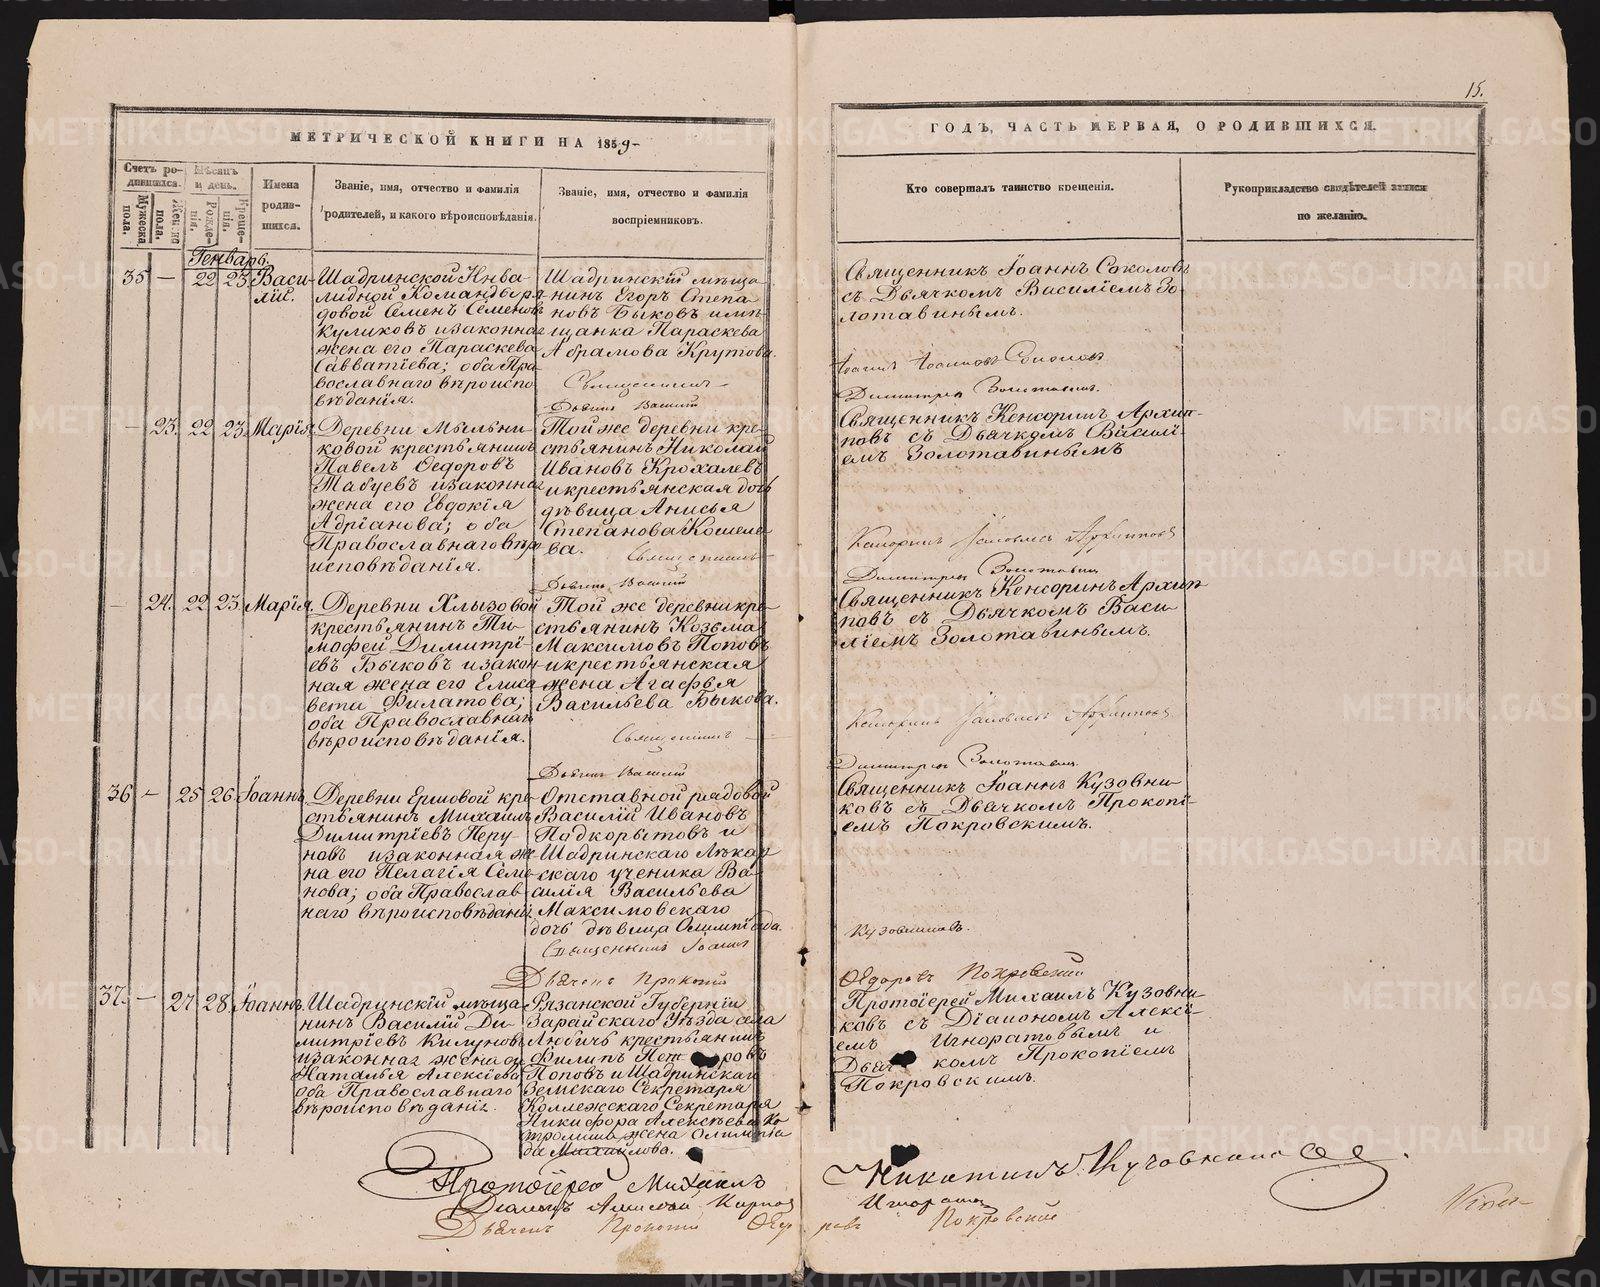 15.
МЕТРИЧЕСКОЙ КНИГИ НА 1859
ГОДЪ, ЧАСТЬ ПЕРВАЯ, О РОДИВШИХСЯ.
Счетъ ро-
дившихся.
Мужеска
пола.
Женска
пола.
Мѣсяцъ
и день.
Рожде-
нія.
Креще-
нія.
Имена
родив-
шихся.
Званіе, имя, отчество и фамилія
родителей, и какого вѣроисповѣданія.
Званіе, имя, отчество и фамилія
воспріемниковъ.
Кто совершалъ таинство крещенія.
Рукоприкладство свидѣтелей записи
по желанію.
Генварь.
35 — 22 23 Васи-
лій.
Шадринской Инва-
лидной Команды ря-
довой Семенъ Семеновъ
Куликовъ и законная
жена его Параскева
Савватіева; оба Пра-
вославнаго вѣроиспо-
вѣданія.
Шадринскій мѣща-
нинъ Егоръ Степа-
новъ Быковъ и мѣ-
щанка Параскева
Абрамова Крутова.
Священникъ
Дьячекъ Василій
Священникъ Іоаннъ Соколовъ
съ Дьячкомъ Василіемъ Зо-
лотавинымъ.
Іоаннъ Іоанновъ Соколовъ
Димитріевъ Золотавинъ.
— 23. 22 23 Марія.
Деревни Мыльни-
ковой крестьянинъ
Павелъ Ѳедоровъ
Табуевъ и законная
жена его Евдокія
Адріанова; оба
Православнаго вѣро-
исповѣданія.
Той же деревни кре-
стьянинъ Николай
Ивановъ Крохалевъ
и крестьянская дочь
дѣвица Анисья
Степанова Кошеле-
ва.
Священникъ
Дьячекъ Василій
Священникъ Кенсоринъ Архип-
повъ съ Дьячкомъ Васили-
емъ Золотавинымъ
Кенсоринъ Архипповъ
Димитріевъ Золотавинъ
— 24. 22 23 Марія.
Деревни Хлызовой
крестьянинъ Ти-
мофей Димитрі-
евъ Быковъ и закон-
ная жена его Елиса-
вета Филатова;
оба Православнаго
вѣроисповѣданія.
Той же деревни кре-
стьянинъ Козьма
Максимовъ Поповъ
и крестьянская
жена Агафья
Васильева Быкова.
Священникъ
Дьячекъ Василій
Священникъ Кенсоринъ Архип-
повъ съ Дьячкомъ Васи-
ліемъ Золотавинымъ.
Кенсоринъ Архипповъ
Димитріевъ Золотавинъ
36 — 25 26 Іоаннъ
Деревни Ершовой кре-
стьянинъ Михаилъ
Димитріевъ Перу-
новъ и законная же-
на его Пелагія Семе-
нова; оба Православ-
наго вѣроисповѣданія
Отставной рядовой
Василій Ивановъ
Подкорытовъ и
Шадринскаго лѣкар-
скаго ученика Ва-
силія Васильева
Максимовскаго
дочь дѣвица Олимпіада.
Священникъ Іоаннъ
Дьячекъ Прокопій
Священникъ Іоаннъ Кузовни-
ковъ съ Дьячкомъ Прокопі-
емъ Покровскимъ.
Кузовниковъ.
Ѳедоровъ Покровскій
37. — 27 28 Іоаннъ
Шадринскій мѣща-
нинъ Василій Ди-
митріевъ
и законная жена его
Наталья Алексіева
оба Православнаго
вѣроисповѣданія.
Рязанской Губерніи
Зарайскаго Уѣзда села
Любичь крестьянинъ
Филипъ Петровъ
Поповъ и Шадринскаго
Земскаго Секретаря
Коллежскаго Секретаря
Никифора Алексѣева Ко-
жена Олимпіа-
да Михайлова.
Протоіерей Михаилъ Кузовни-
ковъ съ Діакономъ Алексѣ-
емъ Игноратовымъ и
Дьячкомъ Прокопіемъ
Покровскимъ.
Протоіерей Михаилъ Никитинъ Кузовниковъ
Діаконъ Алексѣй
Дьячекъ Прокопій Ѳедоровъ Покровскій
METRIKI.GASO-URAL.RU